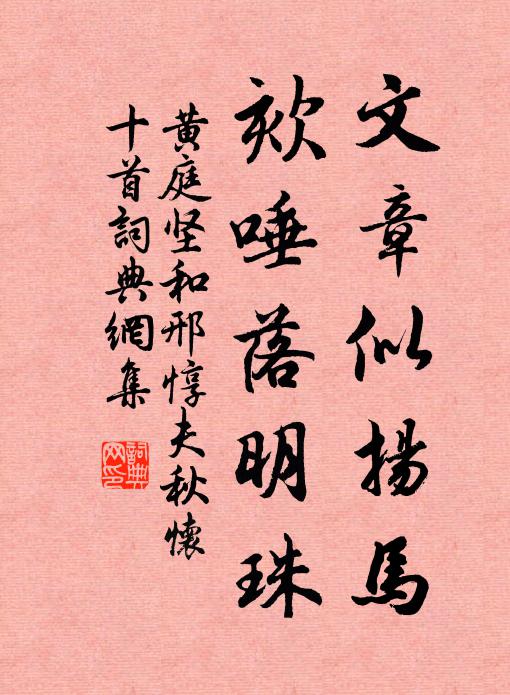 文章似揚馬
欬唾落明珠
黃庭坚和邢惇夫秋懷
十首詞典網集
詞典
网印